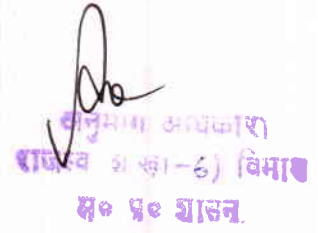 अनुभाग अधिकारी
राजस्व शाखा-6) विभाग
म० प्र० शासन.